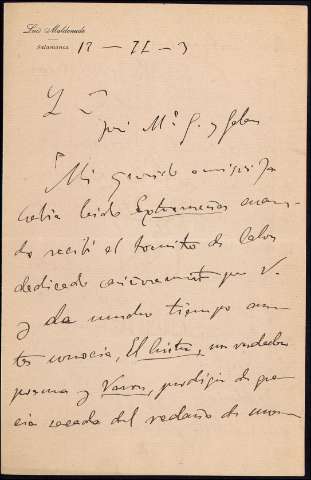 Luis Maldonado
Salamanca
12 - II - 3
José Mª G. y Galan
Mi querido amigo: Ya
habia leido Extremeñas cuan-
do recibí el tomito de
dedicado cariñosamente por V.
y da mucho tiempo an-
tes conocia, El Cristu, un verdadero
poema y Varon, prodigio de gra-
cia sacada del redaño de nues-